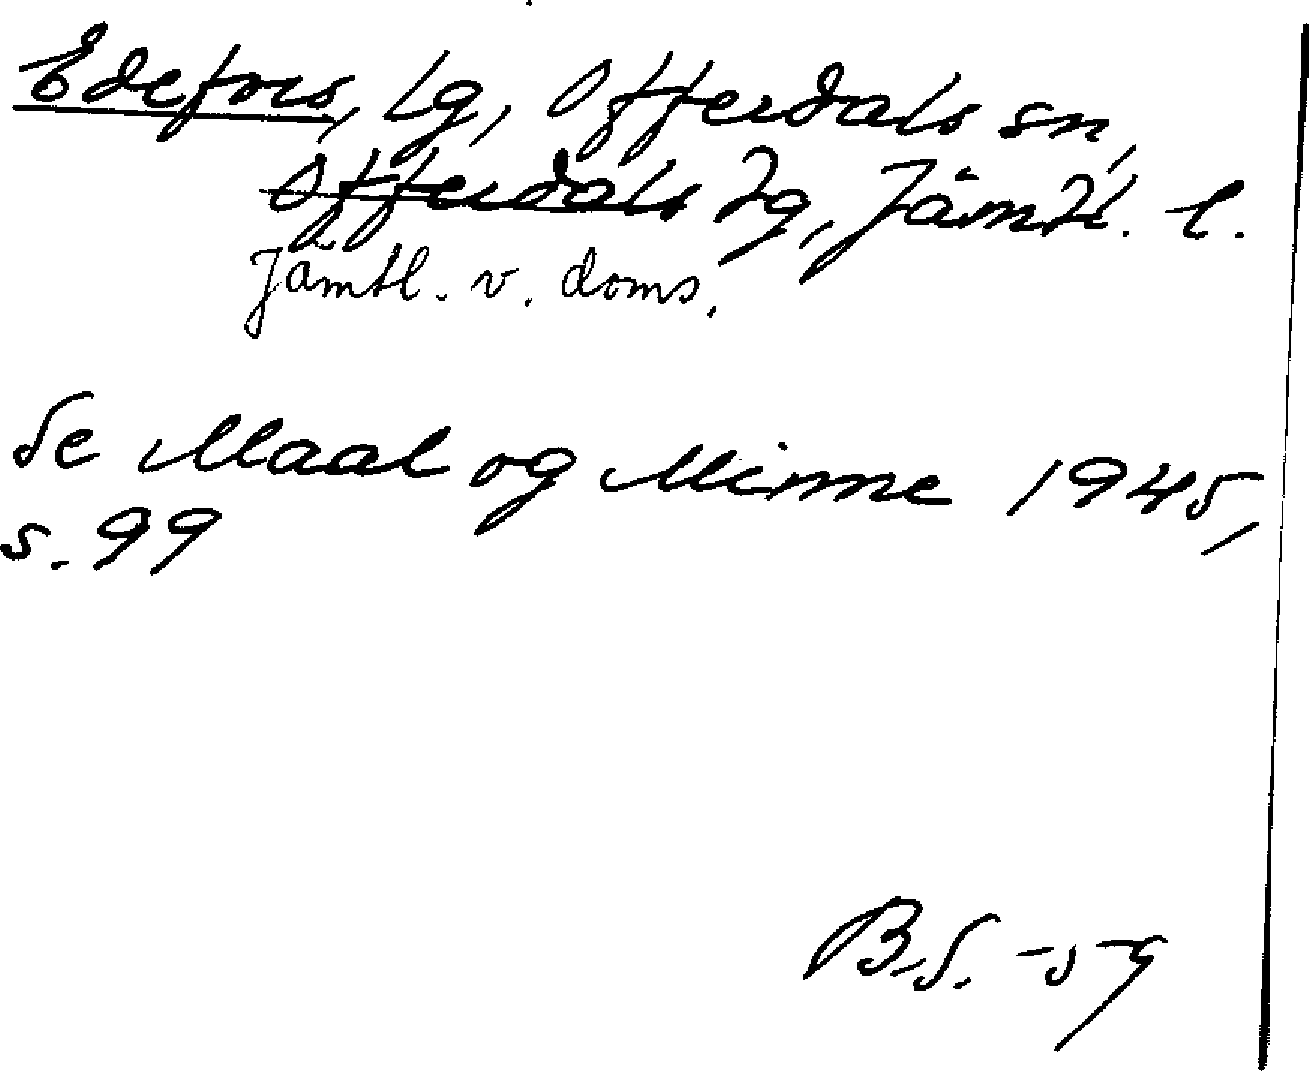 Edefors, tg, Offerdals sn,
Offerdals tg, Jämtl. l.
Jämtl. v. doms.
Se Maal og Minne 1945,
s. 99
B.S. -59